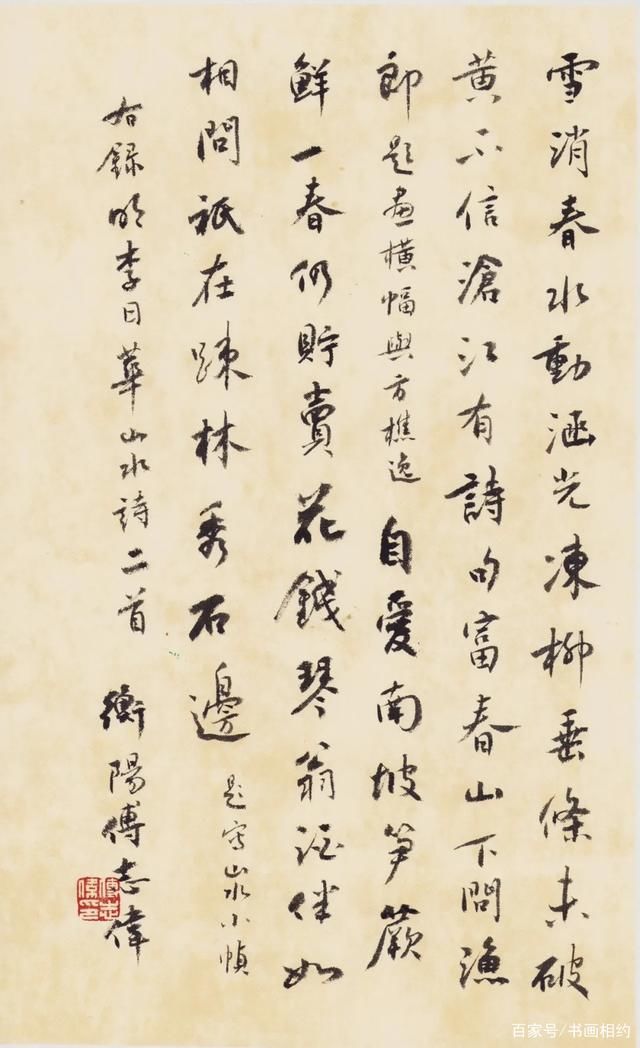 雪消春水動涵光凍柳垂條未破
黃不信滄江有詩句富春山下問漁
郎題畫橫幅與方樵逸自愛南坡筍蕨
鮮一春仍貯賣花錢琴翁酒伴如
相問祇在疎林秀石邊題寫山水小幀
右錄明李日華山水詩二首
衡陽傅志偉
傅志偉印
百家号/书画相约